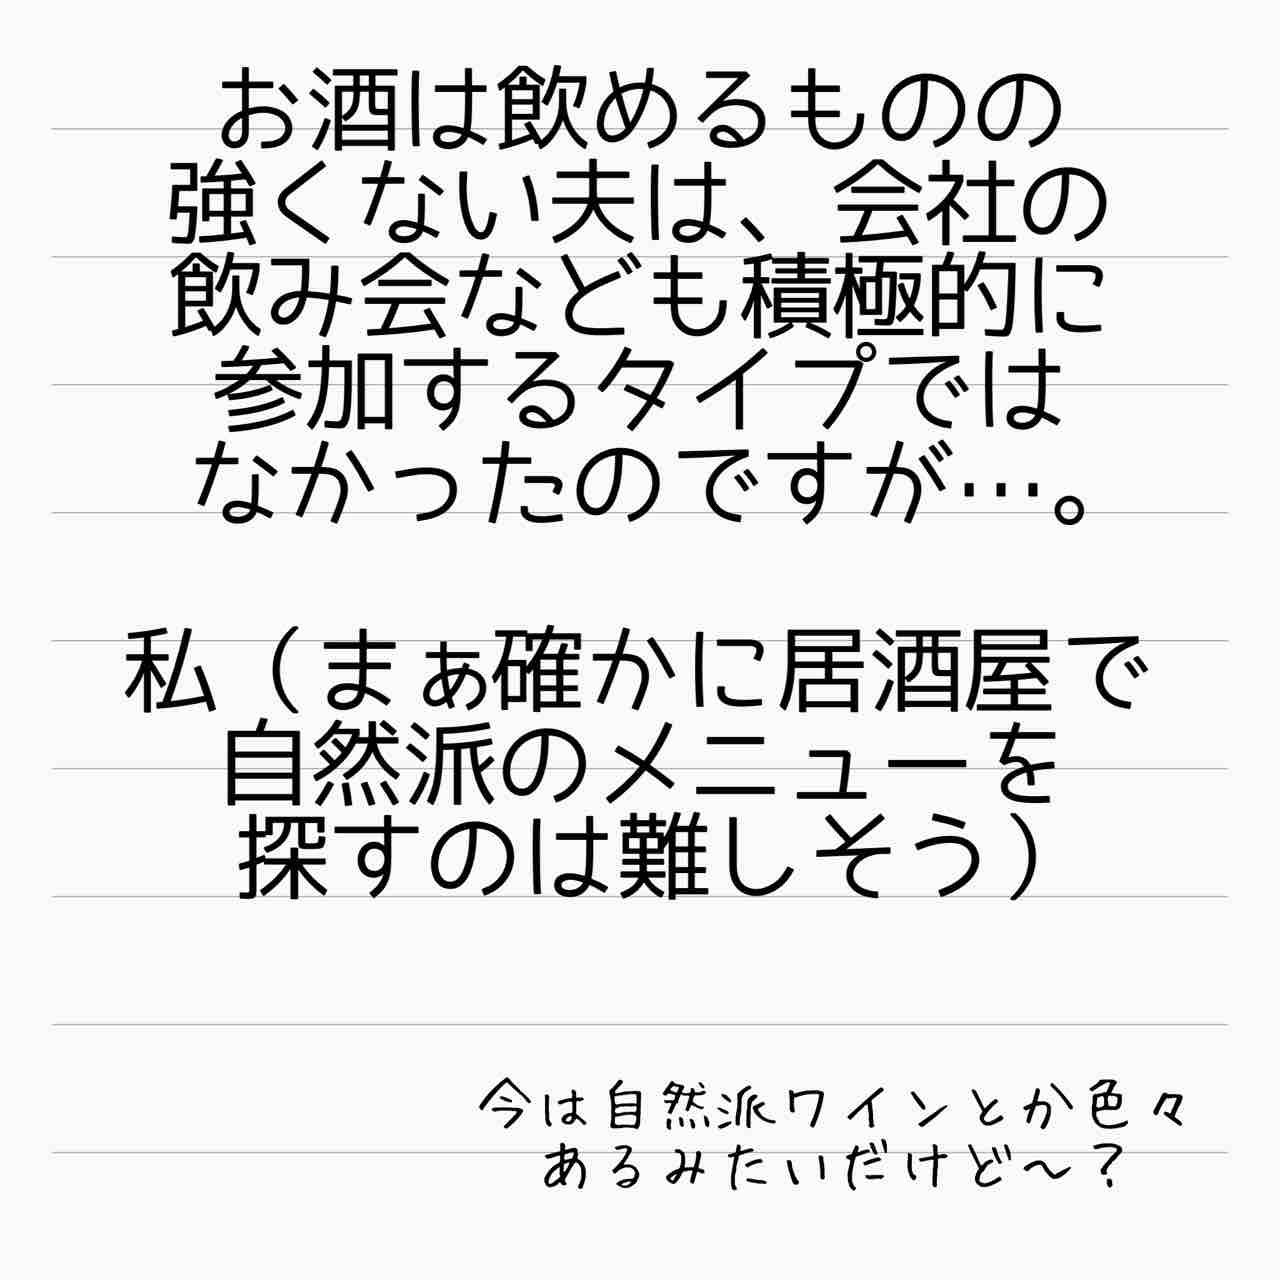 お酒は飲めるものの
強くない夫は、会社の
飲み会なども積極的に
参加するタイプでは
なかったのですが…。
私（まぁ確かに居酒屋で
自然派のメニューを
探すのは難しそう）
今は自然派ワインとか色々
あるみたいだけど〜？